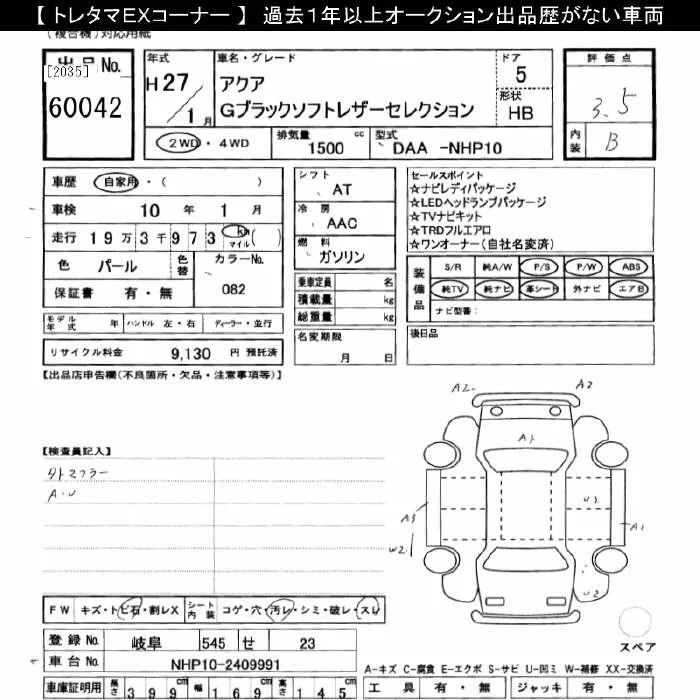 【 トレタマEXコーナー 】 過去１年以上オークション出品歴がない車両
(複合機)対応用紙
出品No.
[2035]
60042
年式
H27/1月
車名・グレード
アクア
Gブラックソフトレザーセレクション
ドア
5
形状
HB
2WD・4WD
排気量 1500 cc
型式 DAA -NHP10
評価点
3.5
内装 B
車歴 自家用・( )
車検 10 年 1 月
走行 19万3千973 km マイル ( )
色 パール 色替 カラーNo. 082
保証書 有・無
モデル年式 年 ハンドル 左・右 ディーラー・並行
リサイクル料金 9,130 円 預託済
シフト AT
冷房 AAC
燃料 ガソリン
乗車定員 名
積載量 kg
総重量 kg
名変期限
月 日
セールスポイント
☆ナビレディパッケージ
☆LEDヘッドランプパッケージ
☆TVナビキット
☆TRDフルエアロ
☆ワンオーナー(自社名変済)
装備品
S/R 純A/W P/S P/W ABS
純TV 純ナビ 革シート 外ナビ エアB
ナビ型番：
後日品
【出品店申告欄(不良箇所・欠品・注意事項等)】
【検査員記入】
外マフラー
A・U
A2 A2
A1
A3
W2
U3
A1
U2
FW キズ・トビ石・割レX シート内装 コゲ・穴・汚レ・シミ・破レ・スレ
登録No. 岐阜 545 せ 23
車台No. NHP10-2409991
車庫証明用 長さ 399cm 幅 169cm 高さ 145cm
スペア
A-キズ C-腐食 E-エクボ S-サビ U-凹ミ W-補修 XX-交換済
工具 有・無 ジャッキ 有・無